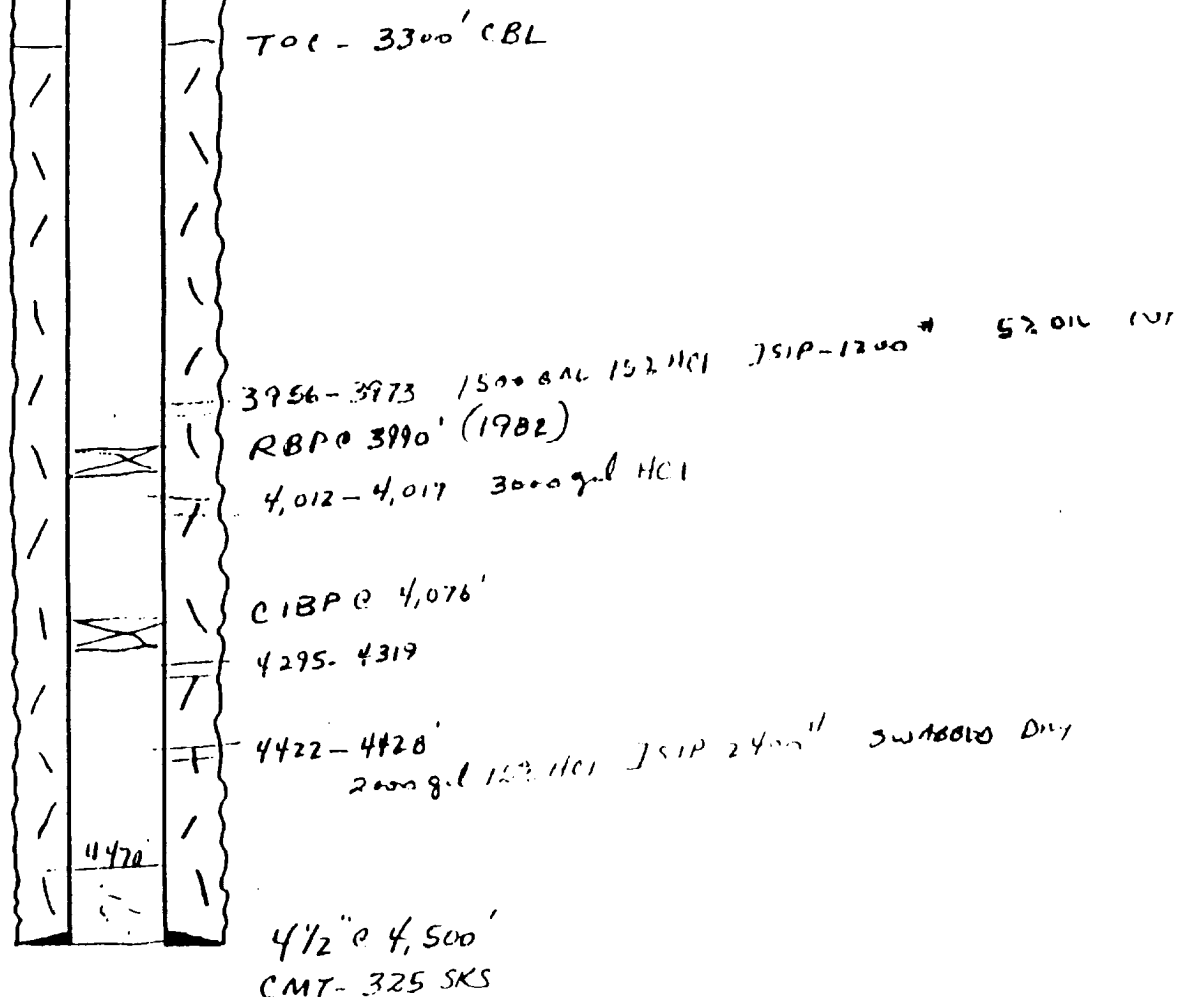 TOC - 3300' CBL
3956-3973 1500 GAL 15% HCl ISIP-1200# 5% OIL CUT
RBP @ 3990' (1982)
4,012-4,017 3000 gal HCl
CIBP @ 4,076'
4295-4319
4422-4428'
2000 gal 15% HCl ISIP 2400# SWABBED Dry
4470'
4 1/2" @ 4,500'
CMT- 325 SKS